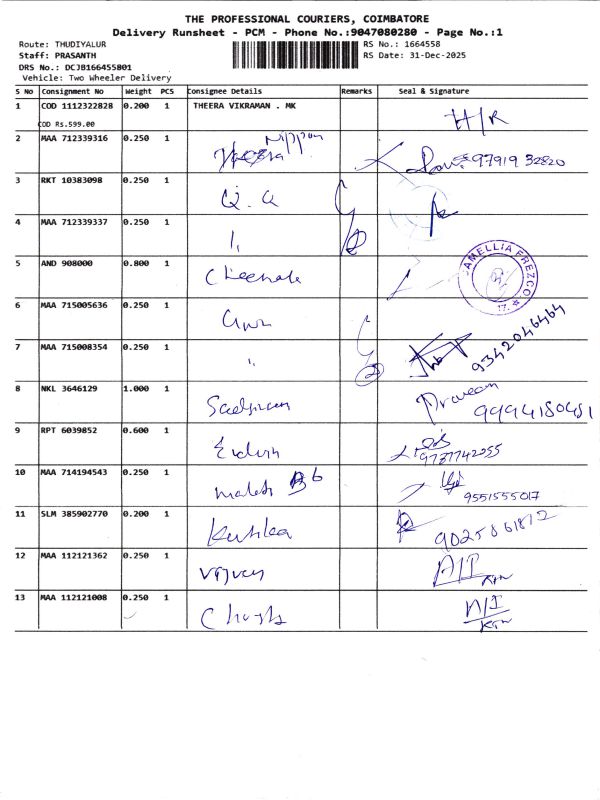 THE PROFESSIONAL COURIERS, COIMBATORE
Delivery Runsheet - PCM - Phone No.:9047080280 - Page No.:1
Route: THUDIYALUR
RS No.: 1664558
Staff: PRASANTH
RS Date: 31-Dec-2025
DRS No.: DCJB166455801
Vehicle: Two Wheeler Delivery
S No Consignment No Weight PCS Consignee Details Remarks Seal & Signature
1 COD 1112322828 0.200 1 THEERA VIKRAMAN . MK H/R
COD Rs.599.00
2 MAA 712339316 0.250 1 Nippon 9791932820
3 RKT 10383098 0.250 1
4 MAA 712339337 0.250 1
5 AND 908000 0.800 1 AMELLIA FREZCO
6 MAA 715005636 0.250 1
7 MAA 715008354 0.250 1 9342046464
8 NKL 3646129 1.000 1 Praveen 9994180481
9 RPT 6039852 0.600 1 9737742255
10 MAA 714194543 0.250 1 9551555017
11 SLM 385902770 0.200 1 9025861872
12 MAA 112121362 0.250 1
13 MAA 112121008 0.250 1